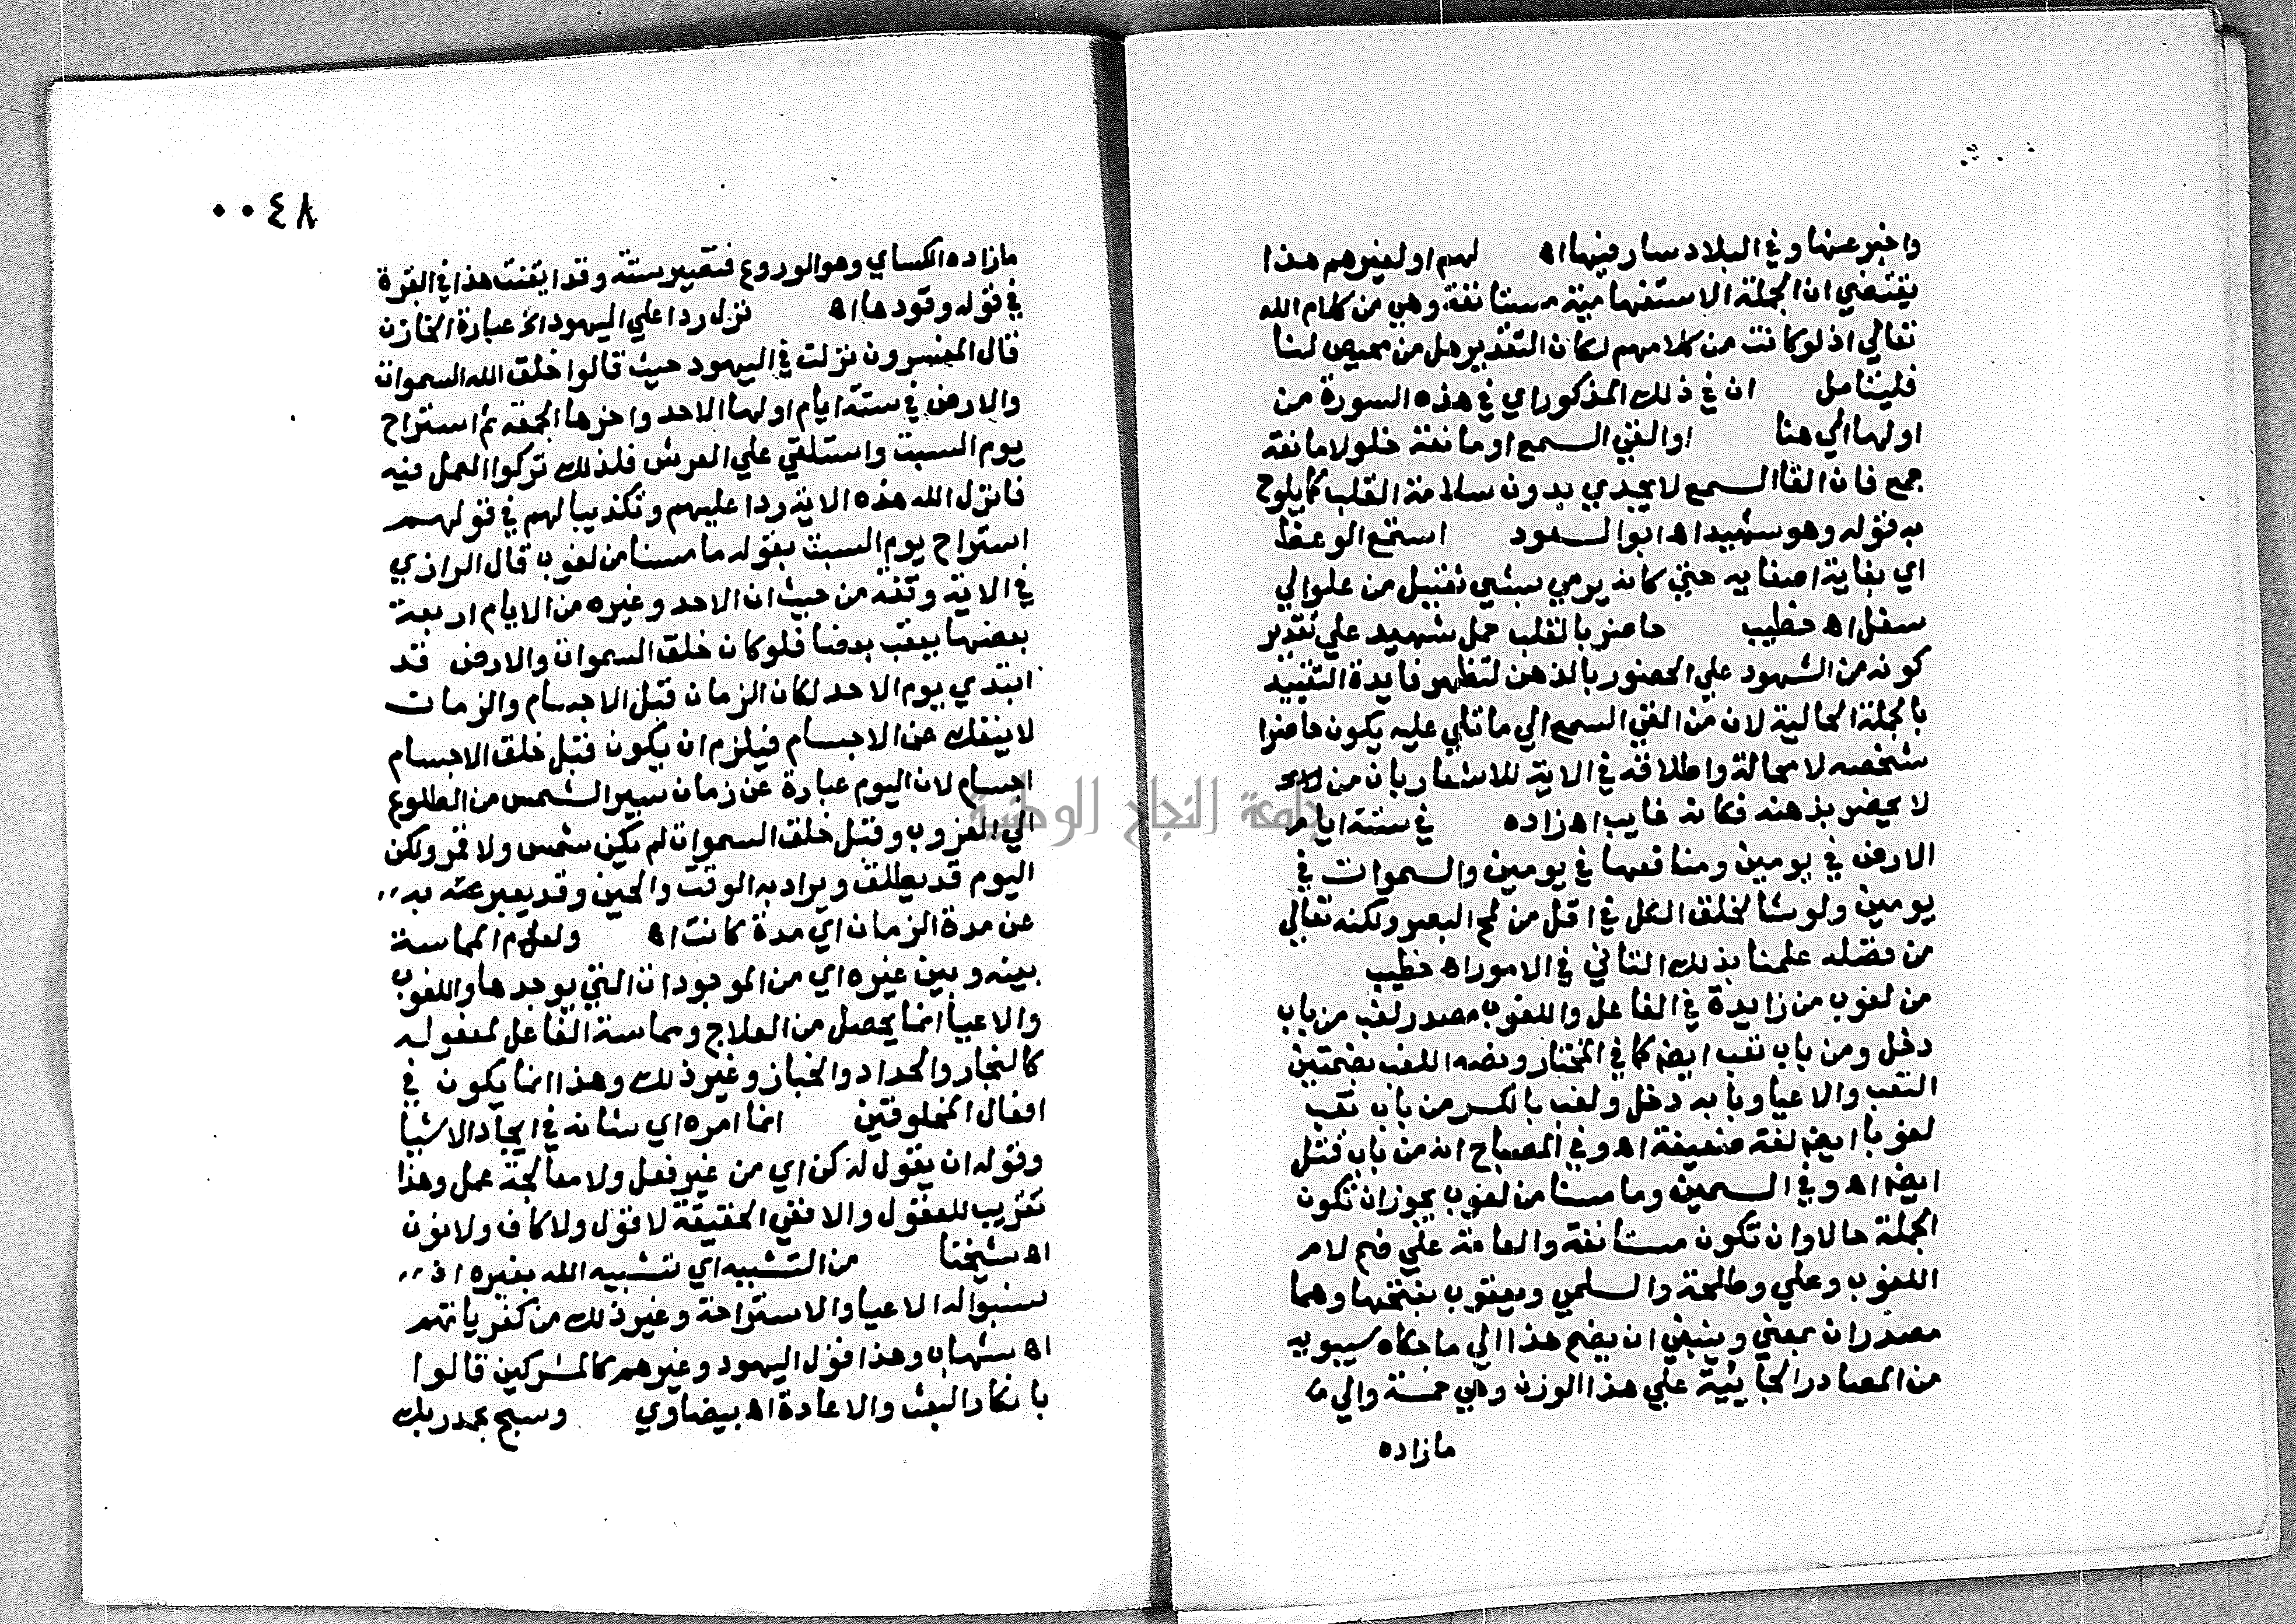 واخبر عنها وفي البلاد سار فيها اه لهم او لغيرهم هذا
يقتضي ان الجملة الاستفهامية مستانفة وهي من كلام الله
تعالي اذ لو كانت من كلامهم لكان التقدير هل من محيص لنا
فليتامل ان في ذلك المذكور اي في هذه السورة من
اولها الي هنا او القي السمع او مانعة خلو لا مانعة
جمع فان القا السمع لا يجدي بدون سلامة القلب كما يلوح
به قوله وهو شهيد اه ابو السعود استمع الوعظ
اي بغاية اصغايه حتي كانه يرمي بشي ثقيل من علو الي
سفل اه خطيب حاضر بالقلب حمل شهيد علي تقدير
كونه من الشهود علي الحضور بالذهن لتظهر فايدة التقييد
بالجملة الحالية لان من القي السمع الي ما تلي عليه يكون حاضرا
شخصه لا محالة واطلاقه في الاية للاشعار بان من
لا يحضر بذهنه فكانه غايب اه زاده في ستة ايام
الارض في يومين ومنافعها في يومين والسموات في
يومين ولو شا لخلق الكل في اقل من لمح البصر ولكنه تعالي
من فضله علمنا بذلك التاني في الامور اه خطيب
من لغوب من زايدة في الفاعل واللغوب مصدر لغب من باب
دخل ومن باب تعب ايضا كما في المختار ونصه اللغب بضمتين
التعب والاعيا وبابه دخل ولغب بالكسر من باب تعب
لغوبا ايض لغة ضعيفة اه وفي المصباح انه من باب قتل
ايضا اه وفي السمين وما مسنا من لغوب يجوز ان تكون
الجملة حالا وان تكون مستانفة والعامة علي ضم لام
اللغوب وعلي وطلحة والسلمي ويعقوب بفتحها وهما
مصدران بمعني وينبغي ان يضم هذا الي ما حكاه سيبويه
من المصادر الجائية علي هذا الوزن وهي خمسة والي
مازاده
٠٠٤٨
مازاده الكساي وهو الوروع فتصير ستة وقد اتقنت هذا في البقرة
في قوله وقودها اه نزل ردا علي اليهود الخ عبارة الخازن
قال المفسرون نزلت في اليهود حيث قالوا خلق الله السموات
والارض في ستة ايام اولها الاحد واخرها الجمعة ثم استراح
يوم السبت واستلقي علي العرش فلذلك تركوا العمل فيه
فانزل الله هذه الاية ردا عليهم وتكذيبا لهم في قولهم
استراح يوم السبت بقوله ما مسنا من لغوب قال الرازي
في الاية وقفة من حيث ان الاحد وغيره من الايام ازمنة
بعضها يعقب بعضا فلو كان خلق السموات والارض قد
ابتدي يوم الاحد لكان الزمان قبل الاجسام والزمان
لا ينفك عن الاجسام فيلزم ان يكون قبل خلق الاجسام
اجسام لان اليوم عبارة عن زمان سير الشمس من الطلوع
الي الغروب وقبل خلق السموات لم يكن شمس ولا قمر ولكن
اليوم قد يطلق ويراد به الوقت والحين وقد يعبر عنه به
عن مدة الزمان اي مدة كانت اه ولعدم المماسة
بينه وبين غيره اي من الموجودات التي يوجدها واللغوب
والاعيا انما يحصل من العلاج ومماسة الفاعل لمفعوله
كالنجار والحداد والخباز وغير ذلك وهذا انما يكون في
افعال المخلوقين انما امره اي شانه في ايجاد الاشيا
وقوله ان يقول له كن اي من غير فعل ولا معالجة عمل وهذا
تقريب للعقول والا ففي الحقيقة لا قول ولا كاف ولا نون
اه شيخنا من التشبيه اي تشبيه الله بغيره اذ
نسبوا له الاعيا والاستراحة وغير ذلك من كفرياتهم
اه شهاب وهذا قول اليهود وغيرهم كالمشركين قالوا
بانكار البعث والاعادة اه بيضاوي وسبح بحمد ربك
جامعة النجاح الوطنية